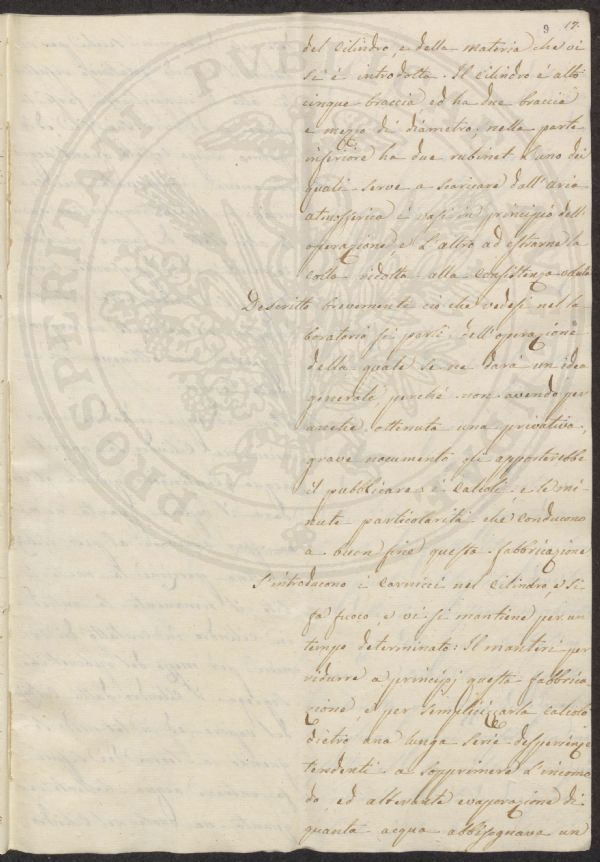 9 17.
del Cilindro, e della materia che vi
si è introdotta. Il Cilindro è alto
cinque braccia ed ha due braccia
e mezzo di diámetro; nella parte
inferiore ha due rubinet. L'uno dei
quali serve a scaricare dall'aria
atmosferica i vasi in principio dell'
operazione e L'altro ad estrarne la
colla ridotta alla Consistenza voluta
Descritto brevemente ciò che vedesi nel la
boratorio si parli dell'operazione
della quale se ne dará un idea
generale perché non avendo per
anche ottenuta una privativa,
grave nocumento gli apporterebbe
il pubblicare i Calcoli e le mi
nute particolaritá che conducono
a buon fine questa fabbricazione
S'introducono i Carnicci nel Cilindro, e si
fa fuoco, e vi si mantiene per un
tempo determinato: Il Mantiri per
ridurre a principj questa fabbrica
zione, e per semplicizzarla calcolò
dietro una lunga serie d'esperienze
tendenti a sopprimere L'incomo
da ed alterante evaporazione di
quanta acqua abbisognava un
PROSPERITATI PVBLICAE